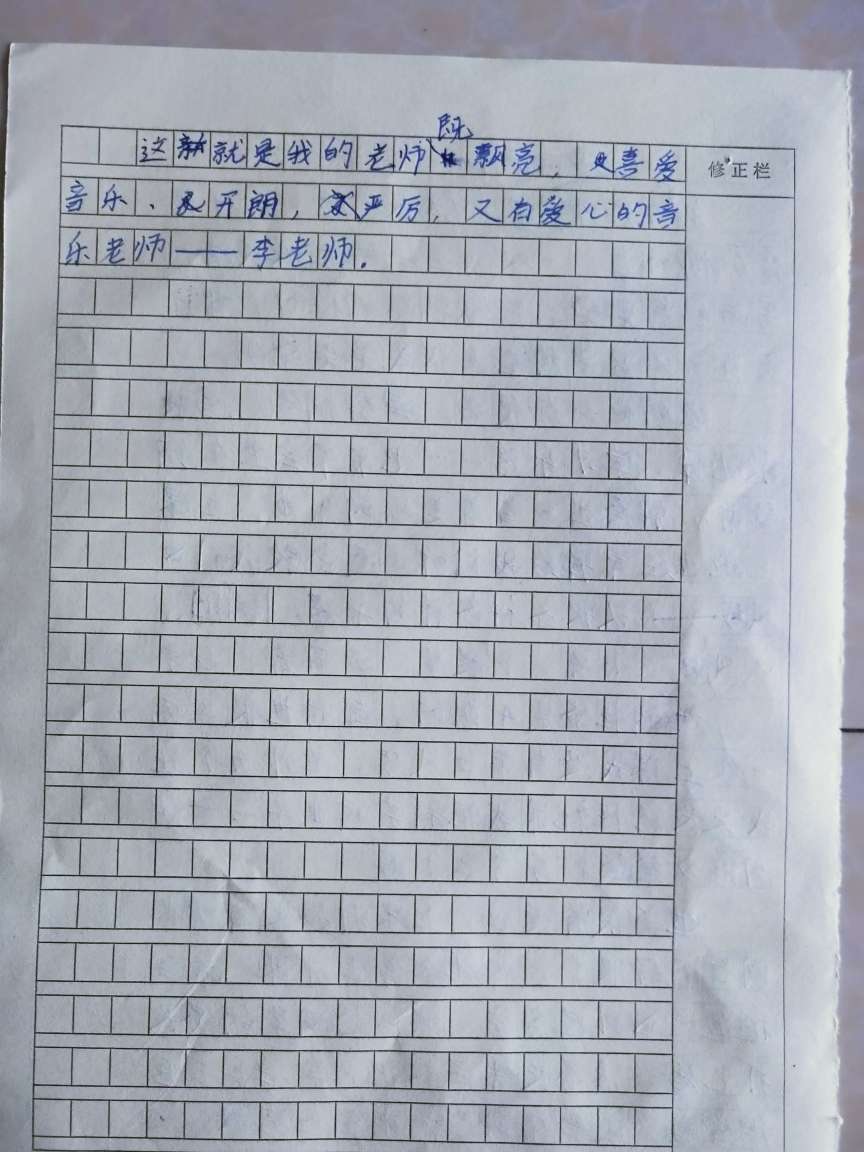 这就是我的老师既飘亮，又喜爱
音乐、又开朗，又严厉，又有爱心的音
乐老师——李老师.
修正栏